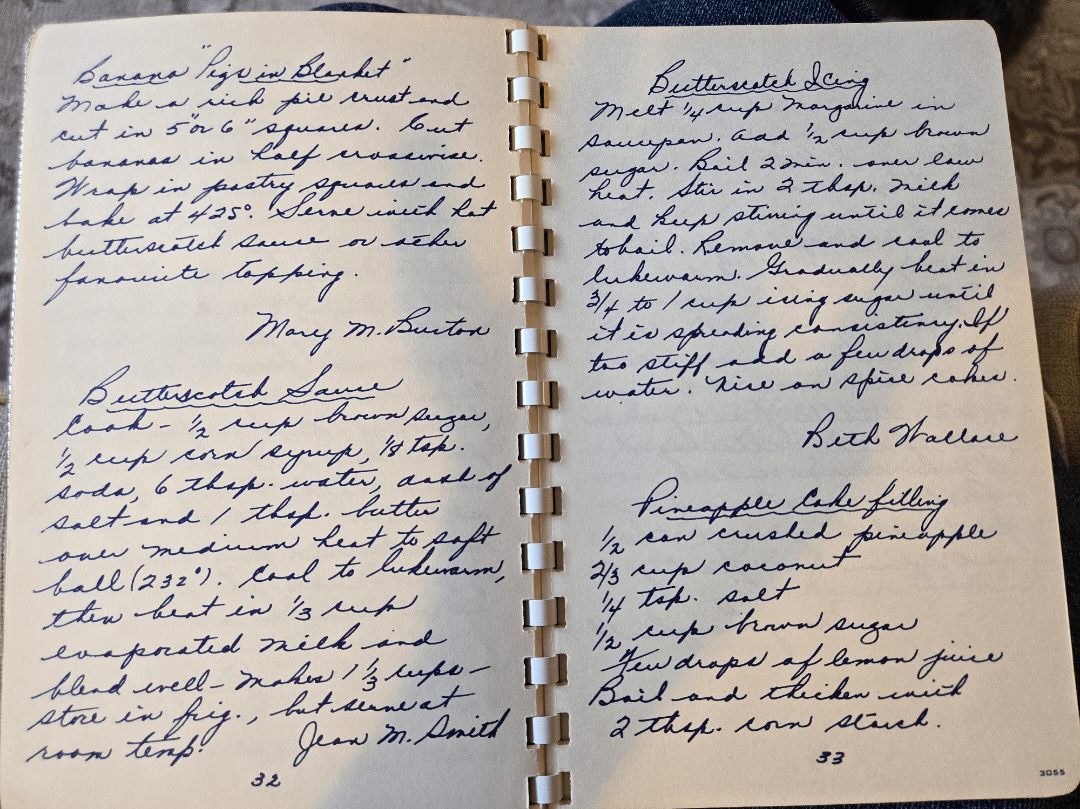 Banana "Pigs in Blanket"
Make a rich pie crust and
cut in 5" or 6" squares. Cut
bananas in half crosswise.
Wrap in pastry squares and
bake at 425°. Serve with hot
butterscotch sauce or other
favourite topping.
Mary M. Burton
Butterscotch Sauce
Cook - 1/2 cup brown sugar,
1/2 cup corn syrup, 1/8 tsp.
soda, 6 tbsp. water, dash of
salt and 1 tbsp. butter
over medium heat to soft
ball (232°). Cool to lukewarm,
then beat in 1/3 cup
evaporated milk and
blend well - Makes 1 1/3 cups -
store in frig., but serve at
room temp.
Jean M. Smith
32
Butterscotch Icing
Melt 1/4 cup margarine in
saucepan. Add 1/2 cup brown
sugar. Boil 2 min. over low
heat. Stir in 2 tbsp. milk
and keep stirring until it comes
to boil. Remove and cool to
lukewarm. Gradually beat in
3/4 to 1 cup icing sugar until
it is spreading consistency. If
too stiff add a few drops of
water. Nice on spice cakes.
Beth Wallace
Pineapple Cake filling
1/2 can crushed pineapple
2/3 cup coconut
1/4 tsp. salt
1/2 cup brown sugar
Few drops of lemon juice
Boil and thicken with
2 tbsp. corn starch.
33
3055